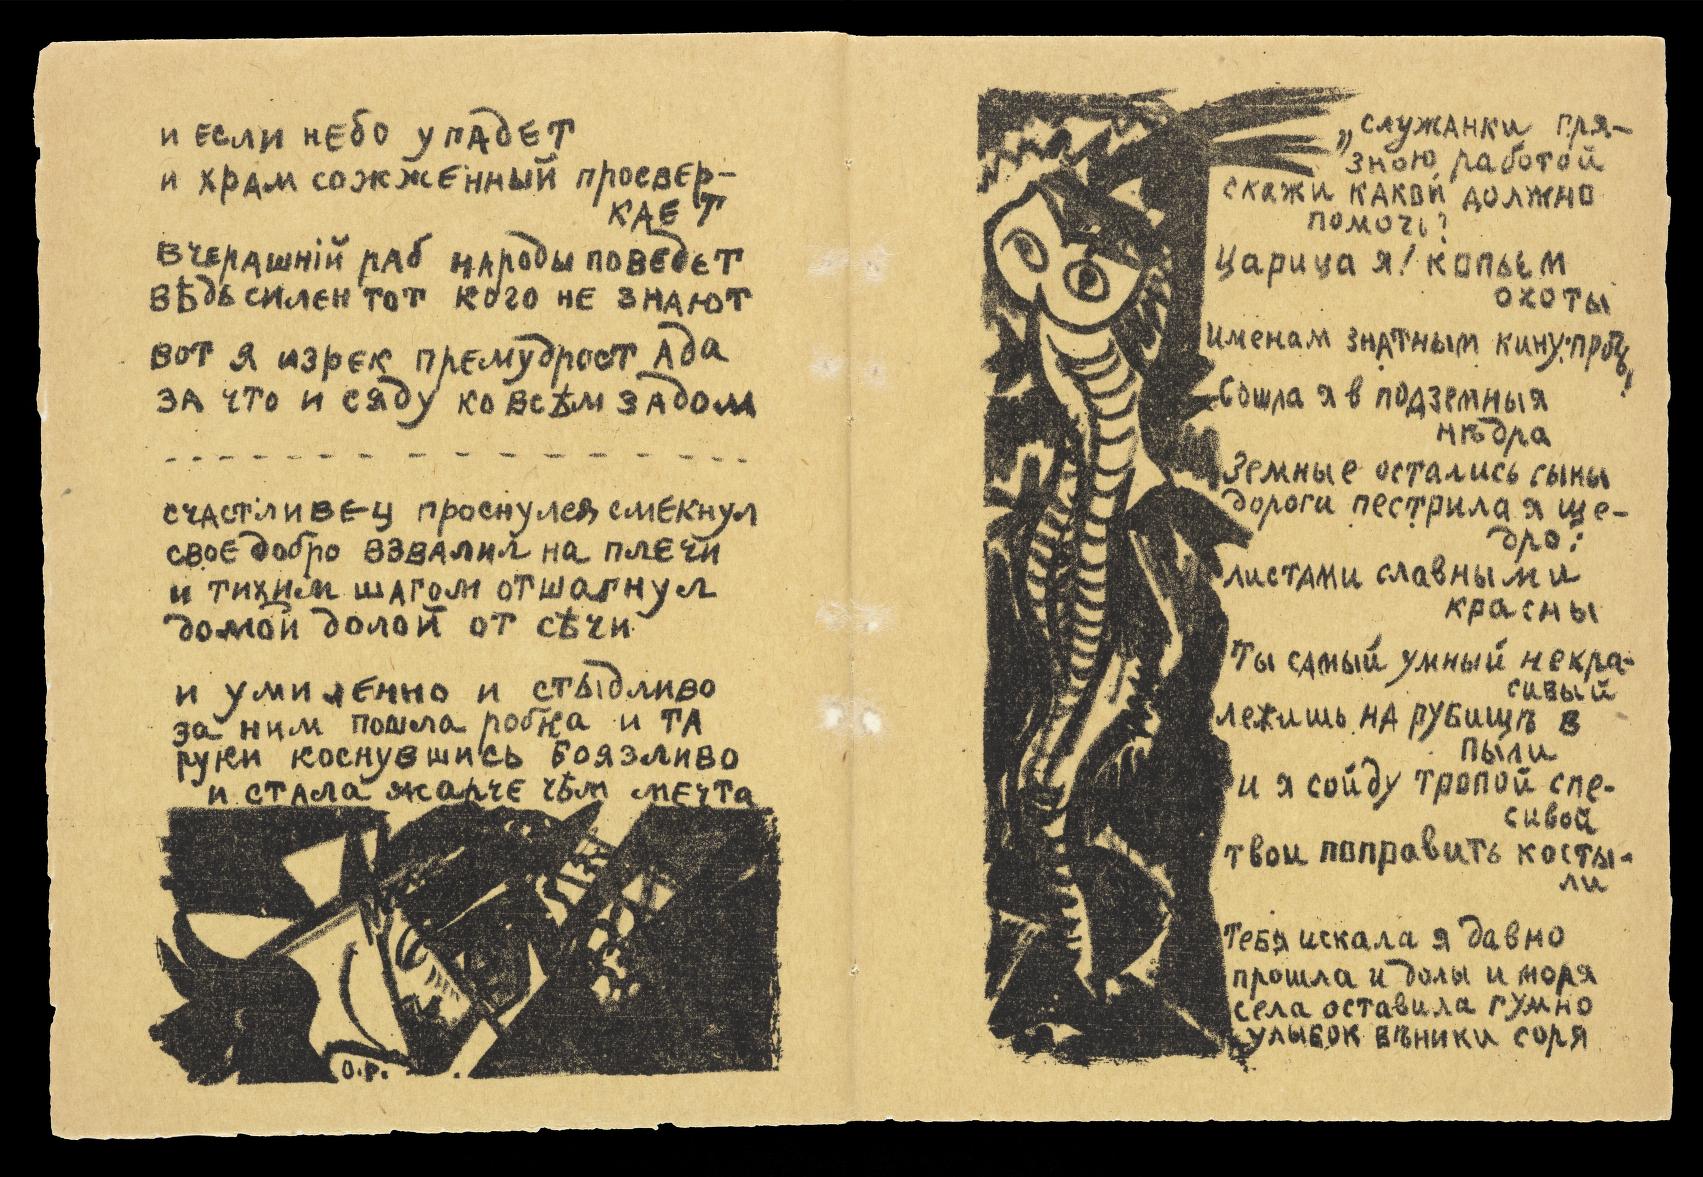 и если небо упадет
и храм сожженный просвер-
кает
вчерашнiй раб народы поведет
вѣдь силен тот кого не знают
вот я изрек премудрост Ада
за что и сяду ко всѣм задом
счастливец проснулся смекнул
свое добро взвалил на плечи
и тихим шагом отшагнул
домой долой от сѣчи
и умиленно и стыдливо
за ним пошла робка и та
руки коснувшись боязливо
и стала жарче чѣм мечта
О.Р.
„служанки гря-
зною работой
скажи какой должно
помочь?
Царица я! копьем
охоты
Именам знатным кину:прочь!
Сошла я в подземныя
нѣдра
Земные остались сыны
дороги пестрила я ще-
дро:
листами славными и
красны
Ты самый умный некра-
сивый
лежишь на рубищѣ в
пыли
и я сойду тропой спе-
сивой
твои поправить косты-
ли
Тебя искала я давно
прошла и долы и моря
села оставила гумно
улыбок вѣники соря